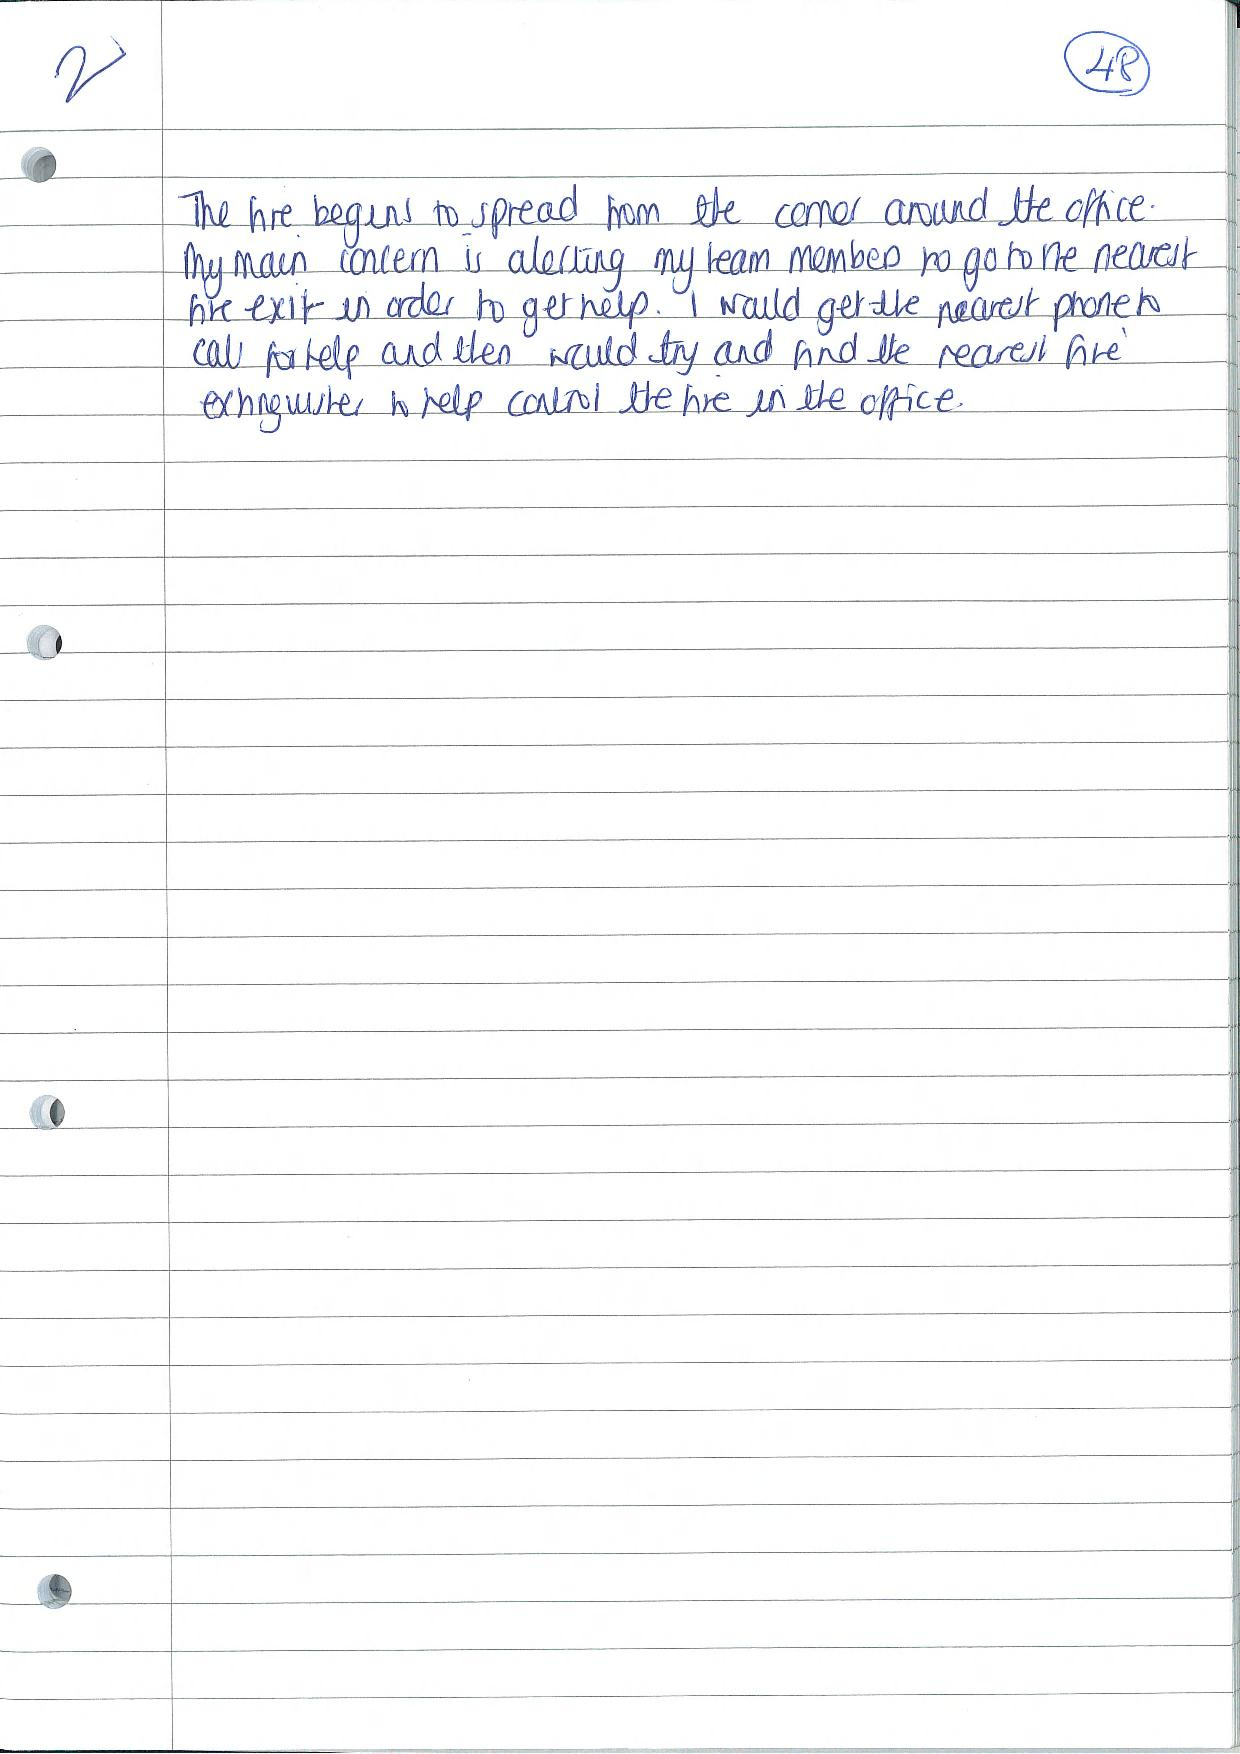 2
48
The fire begins to spread from the corner around the office.
My main concern is alerting my team members to go to the nearest
fire exit in order to get help. I would get the nearest phone to
call for help and then would try and find the nearest fire
extinguisher to help control the fire in the office.